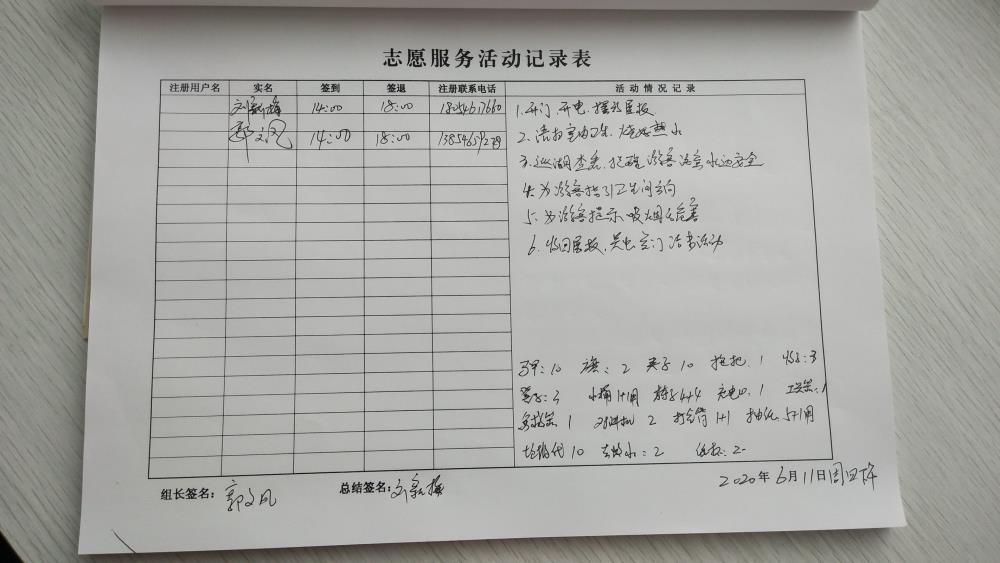 志愿服务活动记录表
注册用户名 实名 签到 签退 注册联系电话 活动情况记录
刘新梅 14:00 18:00
郭文凤 14:00 18:00
1.开门、开电、摆放展板
2、清扫室内卫生、烧好热水
3.巡湖查看、提醒游客注意水边安全
4.为游客指引卫生间方向
5.为游客提示吸烟危害
6.收回展板,关电官门结束活动
马甲:10 旗:2 夹子10 拖把.1 :3
:3 水桶1+1用 4+4 充电 .1 :1
1 对讲机 2 打气筒 1+1 抽纸.5+1用
垃圾代10 :2 :2
组长签名:郭文凤 总结签名:刘新梅 2020年6月11日周四下午